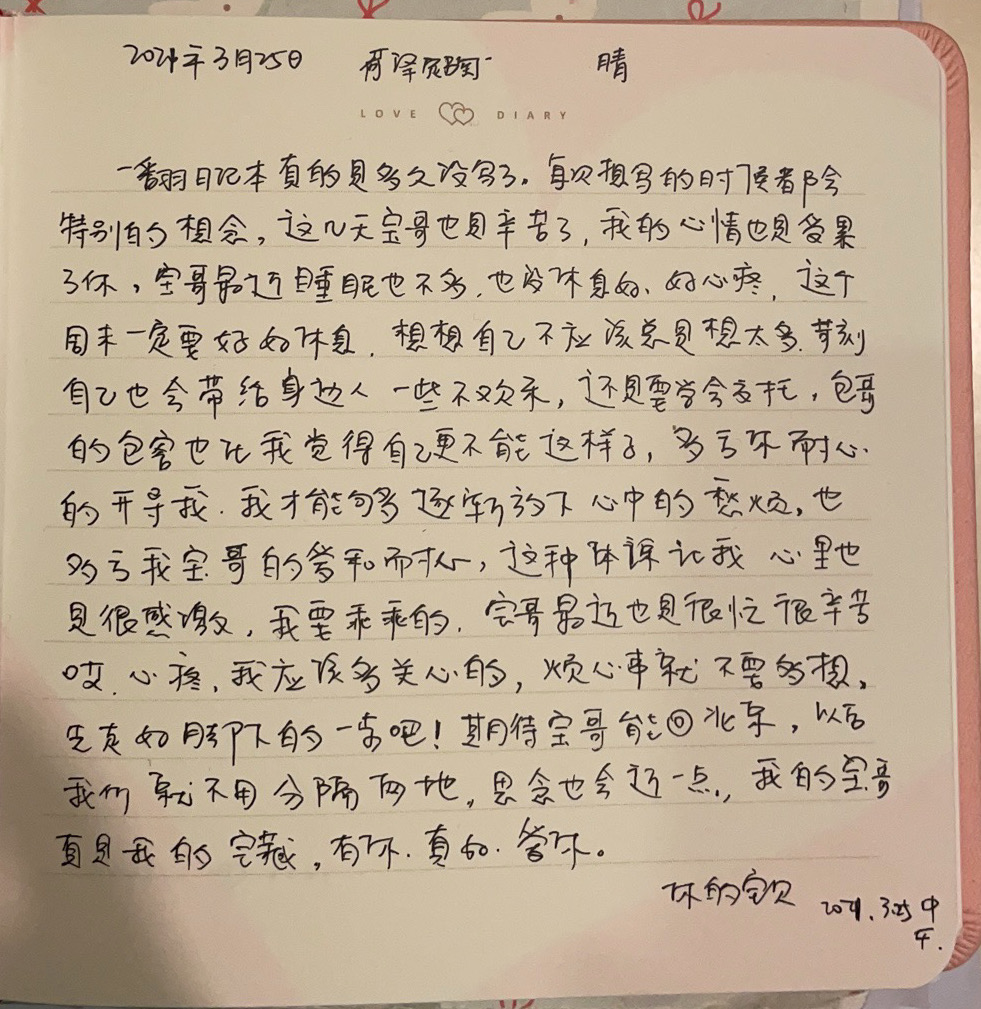 2021年3月25日 菏泽 晴
LOVE DIARY
一翻日记本真的是多久没写了。每次想写的时候都会
特别的想念，这几天宝哥也是辛苦了，我的心情也是
了你，宝哥最近睡眠也不多，也没休息好、好心疼，这个
周末一定要好好休息，想想自己不应该总是想太多，苛刻
自己也会带给身边人一些不欢乐，还是要学会，包哥
的包容也让我觉得自己更不能这样了，多亏你耐心
的开导我，我才能够逐渐放下心中的愁烦，也
多亏我宝哥的爱和耐心，这种让我心里也
是很感激，我要乖乖的，宝哥最近也是很忙很辛苦
哎，心疼，我应该多关心的，烦心事就不要多想，
先走好脚下的一步吧！期待宝哥能回北京，以后
我们就不用分隔两地，思念也会近一点，我的宝哥
真是我的宝藏，有你·真好·爱你。
你的宝贝 2021.3.25 中
午.